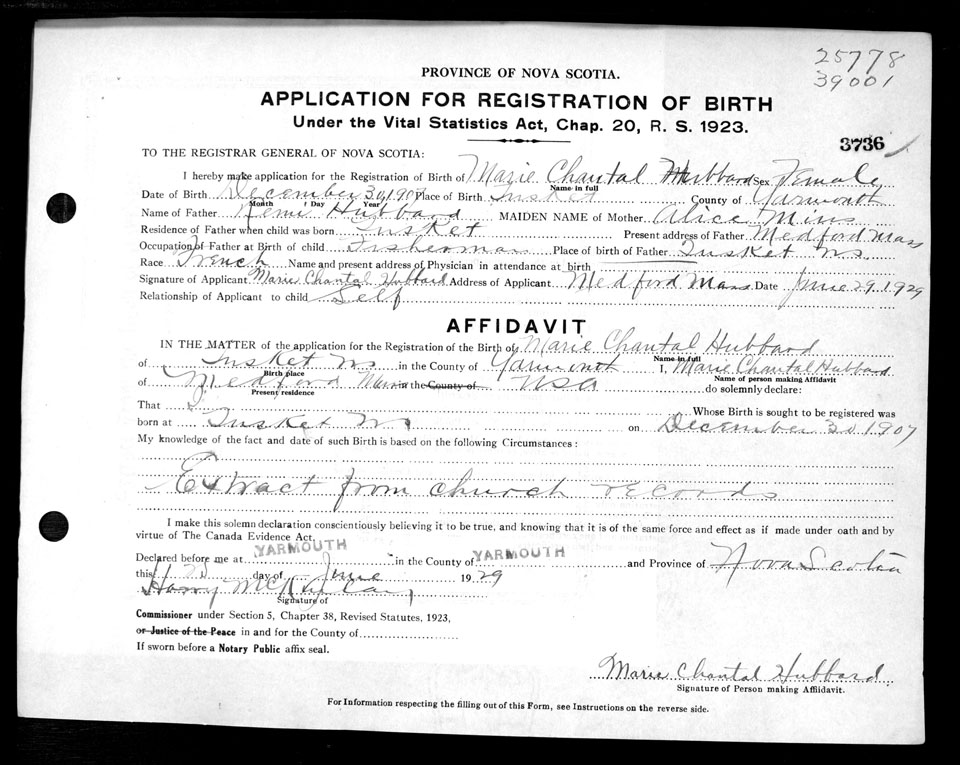 25778
39001
PROVINCE OF NOVA SCOTIA.
APPLICATION FOR REGISTRATION OF BIRTH
Under the Vital Statistics Act, Chap. 20, R. S. 1923.
3736
TO THE REGISTRAR GENERAL OF NOVA SCOTIA:
I hereby make application for the Registration of Birth of Marie Chantal Hubbard Sex Female
Name in full
Date of Birth December 30 1907 Place of Birth Tusket County of Yarmouth
Month / Day Year
Name of Father Remi Hubbard MAIDEN NAME of Mother Alice Mius
Residence of Father when child was born Tusket Present address of Father Medford Mass
Occupation of Father at Birth of child Fisherman Place of birth of Father Tusket NS.
Race French Name and present address of Physician in attendance at birth
Signature of Applicant Marie Chantal Hubbard Address of Applicant Medford Mass Date June 29 1929
Relationship of Applicant to child Self
AFFIDAVIT
IN THE MATTER of the application for the Registration of the Birth of Marie Chantal Hubbard
Name in full
of Tusket NS in the County of Yarmouth I, Marie Chantal Hubbard
Birth place Name of person making Affidavit
of Medford Mass in the County of USA do solemnly declare:
Present residence
That I Whose Birth is sought to be registered was
born at Tusket NS on December 30 1907
My knowledge of the fact and date of such Birth is based on the following Circumstances:
Extract from church records
I make this solemn declaration conscientiously believing it to be true, and knowing that it is of the same force and effect as if made under oath and by
virtue of The Canada Evidence Act.
Declared before me at YARMOUTH in the County of YARMOUTH and Province of Nova Scotia
this day of June 1929
Harry
Signature of
Commissioner under Section 5, Chapter 38, Revised Statutes, 1923,
or Justice of the Peace in and for the County of
If sworn before a Notary Public affix seal.
Marie Chantal Hubbard
Signature of Person making Affidavit.
For Information respecting the filling out of this Form, see Instructions on the reverse side.